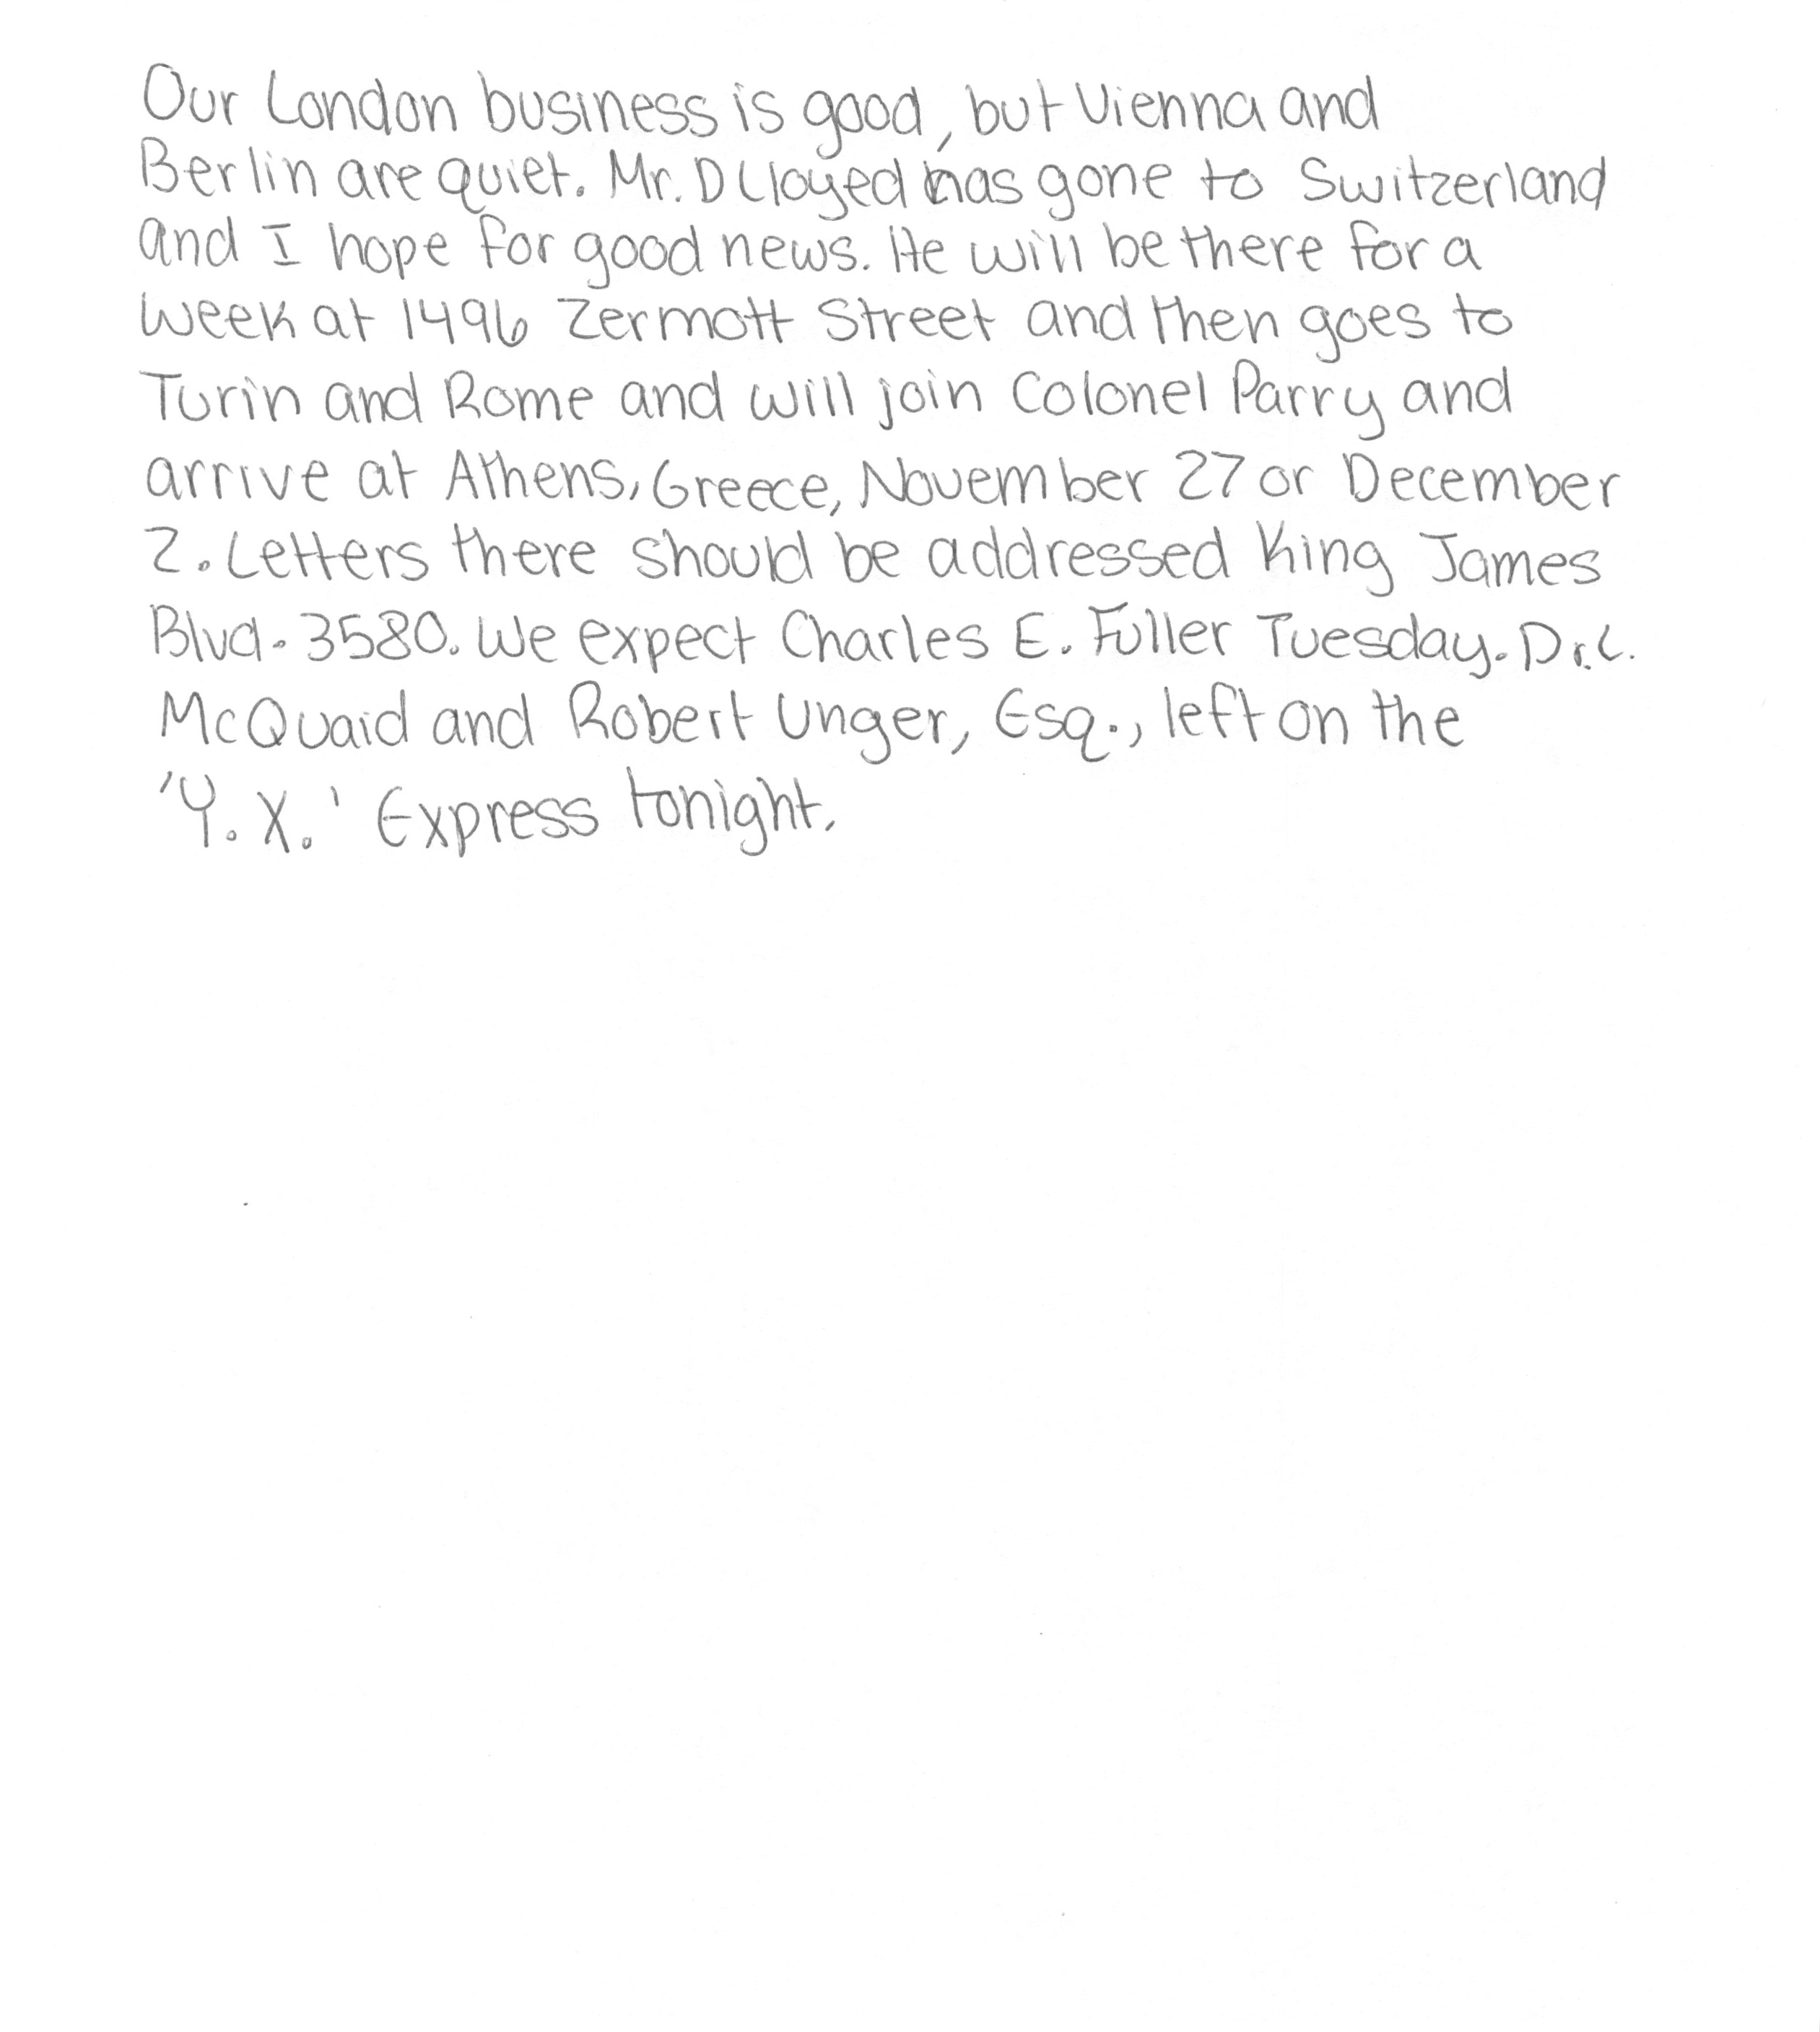 Our London business is good, but Vienna and
Berlin are quiet. Mr. D Lloyed has gone to Switzerland
and I hope for good news. He will be there for a
week at 1496 Zermott Street and then goes to
Turin and Rome and will join Colonel Parry and
arrive at Athens, Greece, November 27 or December
2. Letters there should be addressed King James
Blvd. 3580. We expect Charles E. Fuller Tuesday. Dr. L.
McQuaid and Robert Unger, Esq., left on the
'Y. X.' Express tonight.